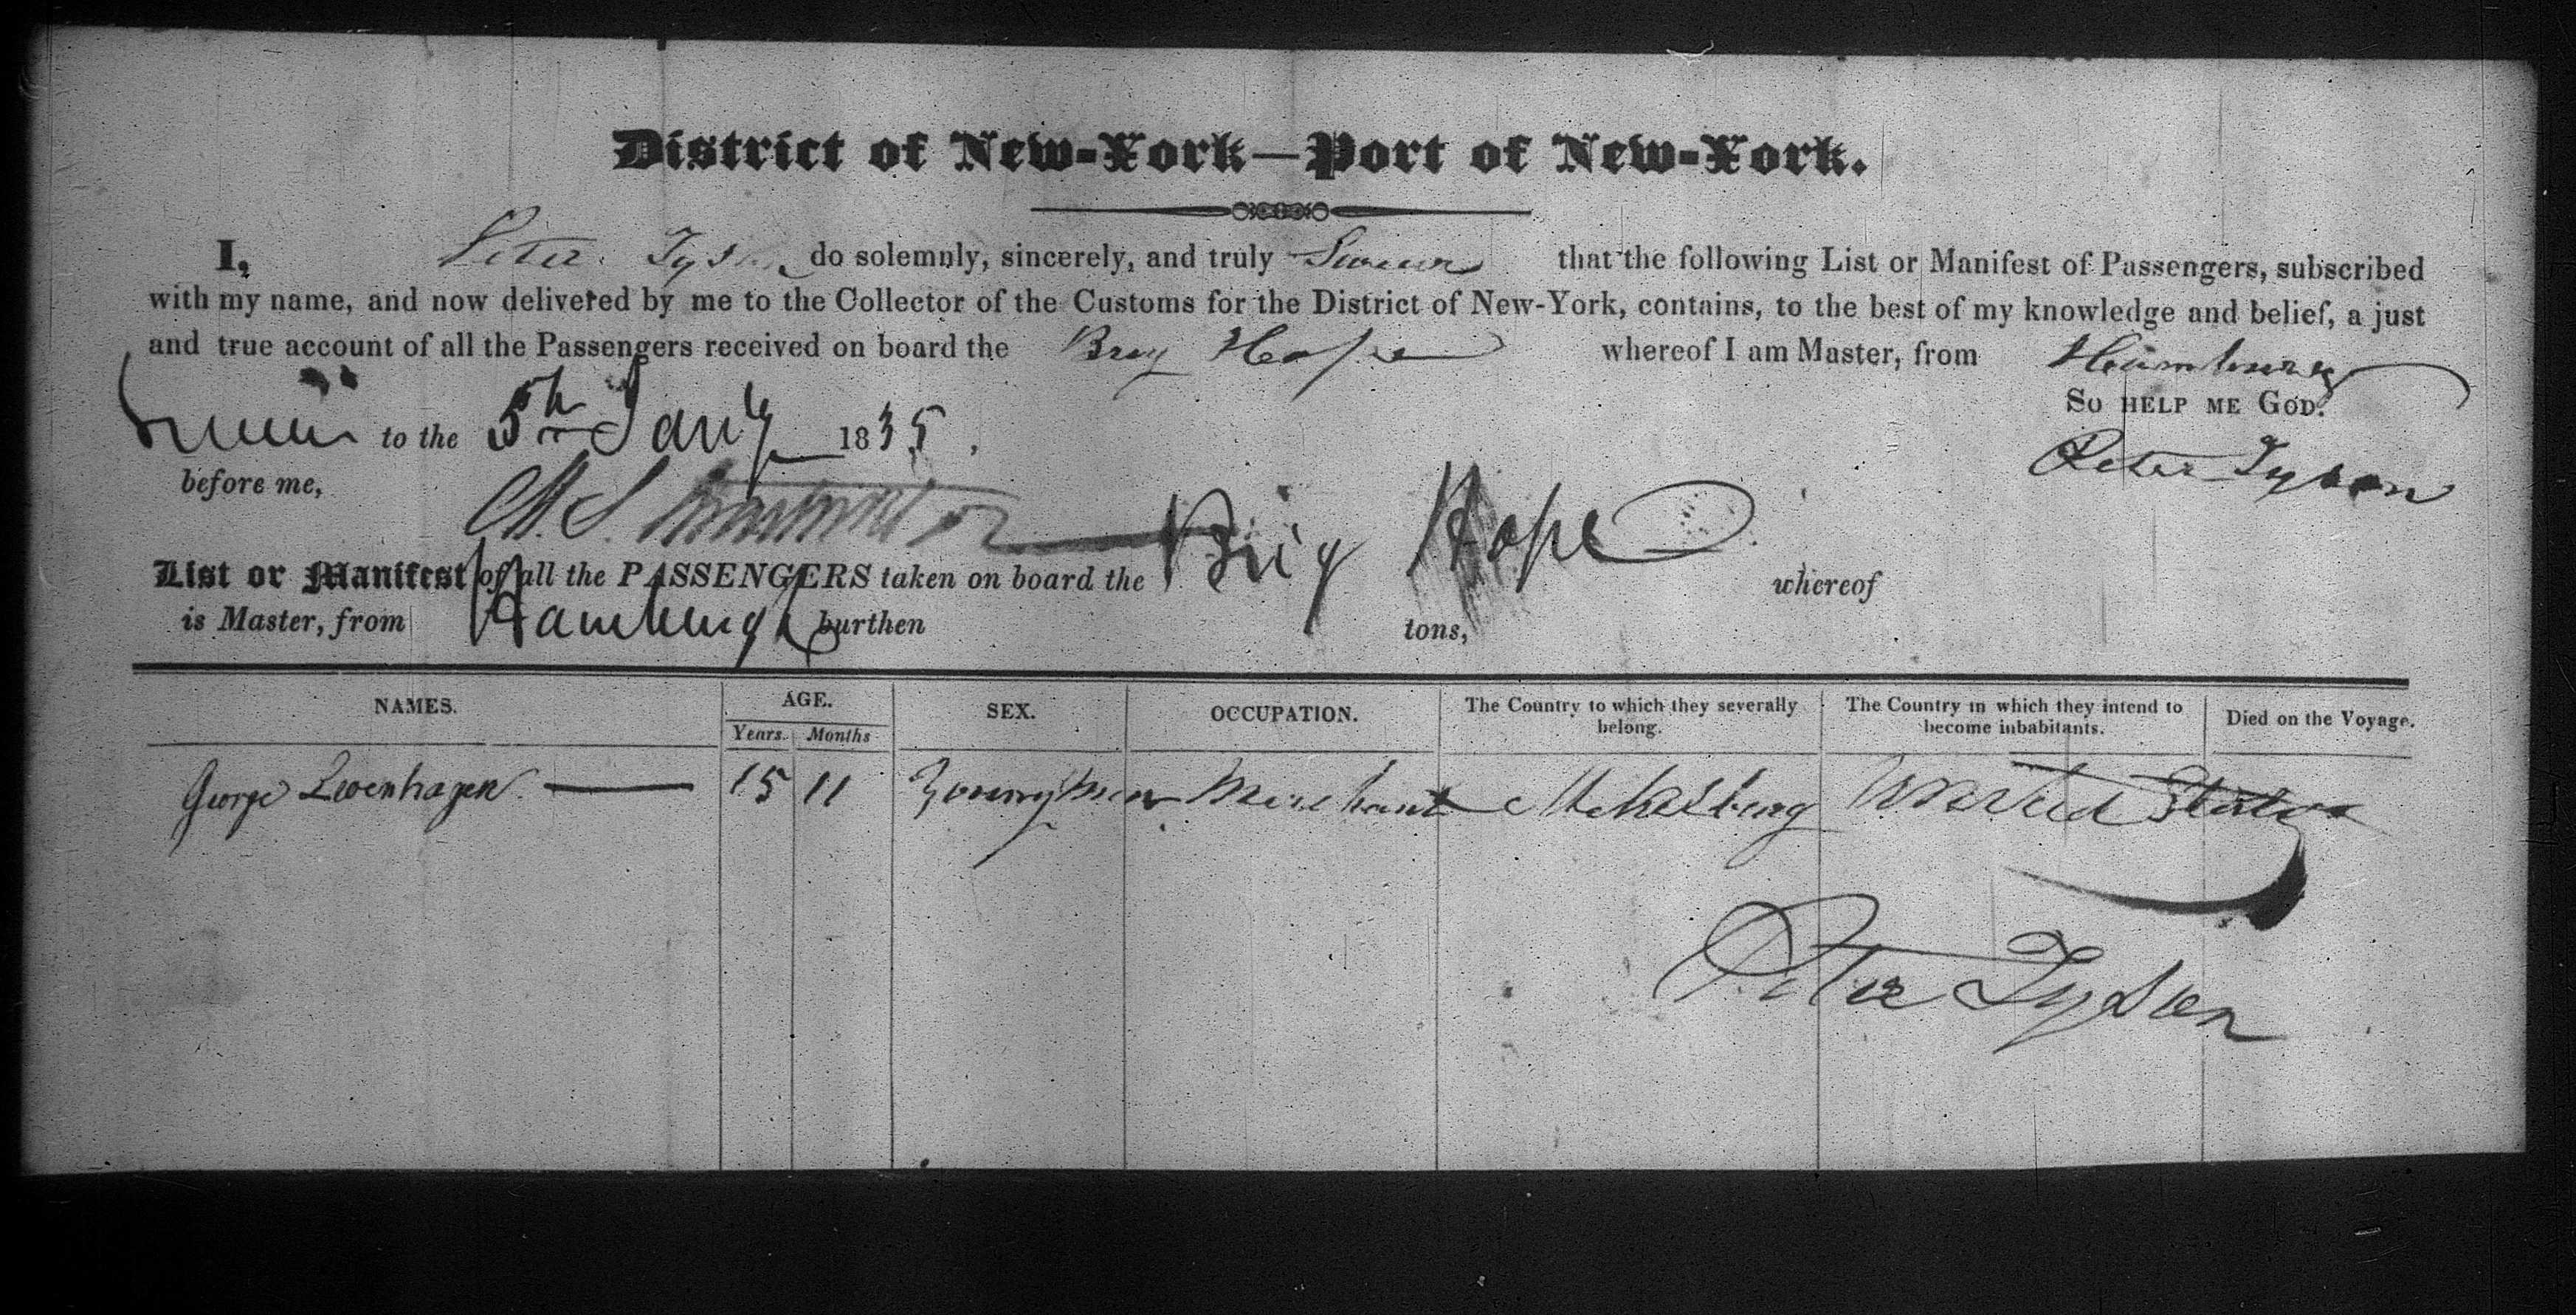 District of New-York—Port of New-York.
I, Peter Tyson do solemnly, sincerely, and truly Swear that the following List or Manifest of Passengers, subscribed
with my name, and now delivered by me to the Collector of the Customs for the District of New-York, contains, to the best of my knowledge and belief, a just
and true account of all the Passengers received on board the Brig Hope whereof I am Master, from Hamburg
So help me God.
to the 5th Jany 1835.
Peter Tyson
before me,
List or Manifest of all the PASSENGERS taken on board the Brig Hope whereof
is Master, from Hamburgh burthen tons,
NAMES. AGE. SEX. OCCUPATION. The Country to which they severally belong. The Country in which they intend to become inhabitants. Died on the Voyage.
Years. Months
George Levenhagen 15 11 Young Man Merchant Meklsburg United States
Peter Tyson